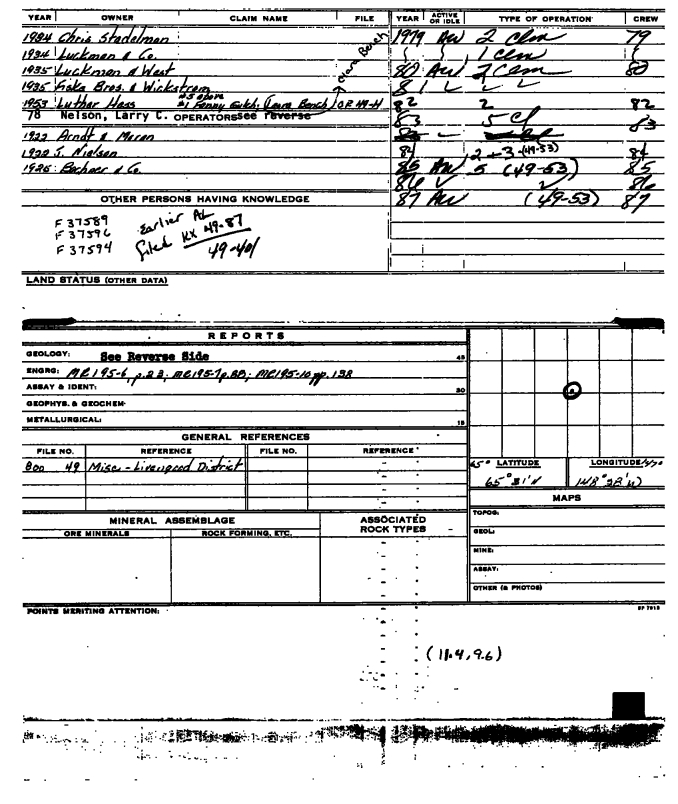 YEAR OWNER CLAIM NAME FILE YEAR ACTIVE OR IDLE TYPE OF OPERATION CREW
1934 Chris Stedelman 1979 AW 2 Clm 79
1934 Luckman & Co. 1 Clm
1935 Luckman & West 80 AW 2 Clm 80
1935 Fiske Bros. & Wickstrom 81
#5 above
1953 Luther Hess #1 Fanny Gulch, (Leora Bench) OR 49-H 82 2 82
78 Nelson, Larry C. OPERATORS see reverse 83 5 Cl 83
1922 Arndt & Moran
1922 J. Nielson 84 2-3 (49-53) 84
1926 & Co. 85 AW 5 (49-53) 85
86 86
OTHER PERSONS HAVING KNOWLEDGE 87 AW (49-53) 87
F 37589
F 37596
F 37594
Earlier
filed KX 49-87
49-401
LAND STATUS (OTHER DATA)
REPORTS
GEOLOGY: See Reverse Side 45
ENGRG: MR195-6, p.23; MR195-7 p.88; MR195-10 pp.138
ASSAY & IDENT: 30
GEOPHYS. & GEOCHEM.
METALLURGICAL: 15
GENERAL REFERENCES
FILE NO. REFERENCE FILE NO. REFERENCE
800 49 Misc. - Livengood District
65° LATITUDE LONGITUDE
65° 31' N 148° 28' W
MAPS
MINERAL ASSEMBLAGE ASSOCIATED ROCK TYPES
ORE MINERALS ROCK FORMING, ETC.
TOPOG:
GEOL:
MINE:
ASSAY:
OTHER (& PHOTOS)
POINTS MERITING ATTENTION:
(11.4, 9.6)